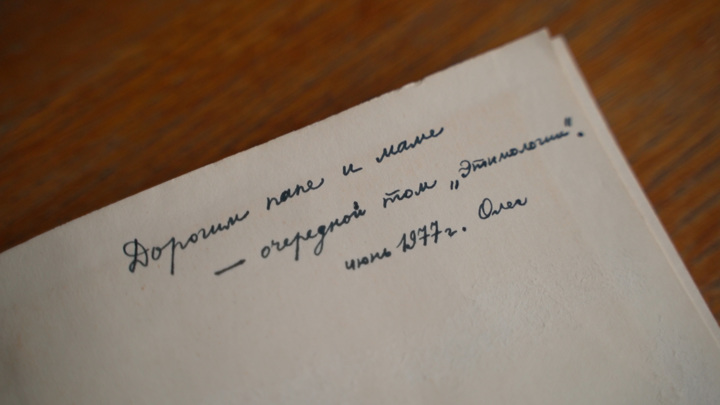 Дорогим папе и маме
— очередной том „Этимологии“.
июнь 1977 г. Олег